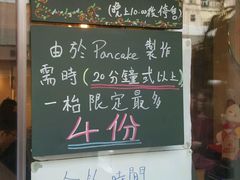 (晚上10:00後停售)
由於 Pancake 製作
需時(20分鐘或以上)
一枱限定最多
4份